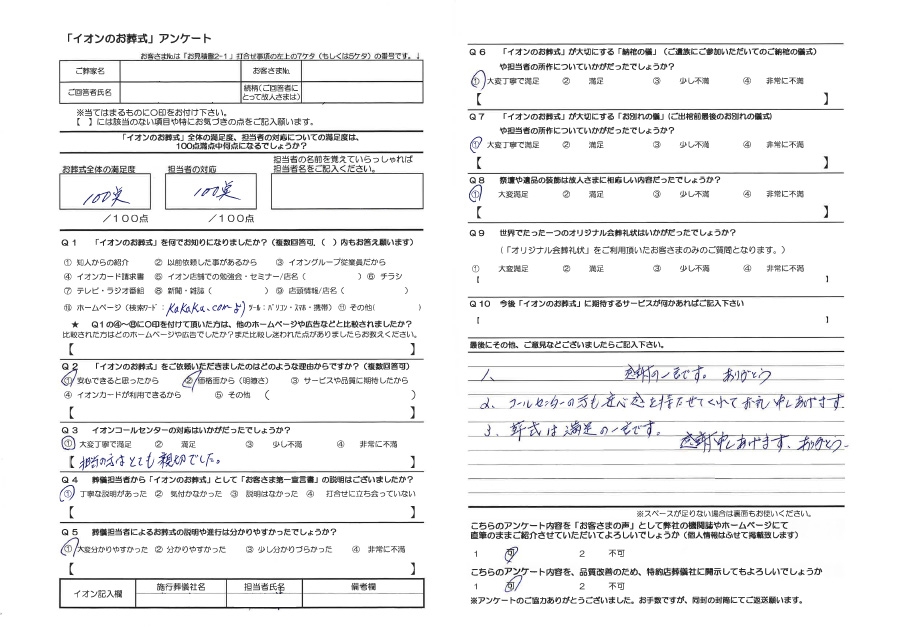 「イオンのお葬式」アンケート
お客さまNoは「お見積書2-1」打合せ事項の左上の7ケタ（もしくは5ケタ）の番号です。↓
ご葬家名 お客さまNo.
ご回答者氏名 続柄(ご回答者にとって故人さまは)
※当てはまるものに〇印をお付け下さい。
【 】には該当のない項目や特にお気づきの点をご記入願います。
「イオンのお葬式」全体の満足度、担当者の対応についての満足度は、
100点満点中何点になるでしょうか？
お葬式全体の満足度 担当者の対応 担当者の名前を覚えていらっしゃれば
担当者名をご記入ください。
100点 100点
／100点 ／100点
Q1 「イオンのお葬式」を何でお知りになりましたか？（複数回答可、( ）内もお答え願います）
① 知人からの紹介 ② 以前依頼した事があるから ③ イオングループ従業員だから
④ イオンカード請求書 ⑤ イオン店舗での勉強会・セミナー/店名（ ）⑥ チラシ
⑦ テレビ・ラジオ番組 ⑧ 新聞・雑誌（ ） ⑨ 店頭情報/店名（ ）
⑩ ホームページ（検索ワード：kakaku.comより ツール：パソコン・スマホ・携帯）⑪ その他( )
★ Q1の④～⑩に〇印を付けて頂いた方は、他のホームページや広告などと比較されましたか？
比較された方はどのホームページや広告でしたか？また比較し迷われた点がありましたらお教えください。
【 】
Q2 「イオンのお葬式」をご依頼いただきましたのはどのような理由からですか？（複数回答可）
① 安心できると思ったから ② 価格面から（明瞭さ） ③ サービスや品質に期待したから
④ イオンカードが利用できるから ⑤ その他 （ ）
【 】
Q3 イオンコールセンターの対応はいかがだったでしょうか？
① 大変丁寧で満足 ② 満足 ③ 少し不満 ④ 非常に不満
【 担当の方はとても親切でした。 】
Q4 葬儀担当者から「イオンのお葬式」として「お客さま第一宣言書」の説明はございましたか？
① 丁寧な説明があった ② 気付かなかった ③ 説明はなかった ④ 打合せに立ち会っていない
【 】
Q5 葬儀担当者によるお葬式の説明や進行は分かりやすかったでしょうか？
① 大変分かりやすかった ② 分かりやすかった ③ 少し分かりづらかった ④ 非常に不満
【 】
イオン記入欄 施行葬儀社名 担当者氏名 備考欄
Q6 「イオンのお葬式」が大切にする「納棺の儀」（ご遺族にご参加いただいてのご納棺の儀式）
や担当者の所作についていかがだったでしょうか？
① 大変丁寧で満足 ② 満足 ③ 少し不満 ④ 非常に不満
【 】
Q7 「イオンのお葬式」が大切にする「お別れの儀」（ご出棺前最後のお別れの儀式）
や担当者の所作についていかがだったでしょうか？
① 大変丁寧で満足 ② 満足 ③ 少し不満 ④ 非常に不満
【 】
Q8 祭壇や遺品の装飾は故人さまに相応しい内容だったでしょうか？
① 大変満足 ② 満足 ③ 少し不満 ④ 非常に不満
【 】
Q9 世界でたった一つのオリジナル会葬礼状はいかがだったでしょうか？
（「オリジナル会葬礼状」をご利用頂いたお客さまのみのご質問となります。）
① 大変満足 ② 満足 ③ 少し不満 ④ 非常に不満
【 】
Q10 今後「イオンのお葬式」に期待するサービスが何かあればご記入下さい
【 】
最後にその他、ご意見などございましたらご記入下さい。
1、 感謝の一言です。ありがとう
2、コールセンターの方も安心感を持たせてくれてお礼申しあげます。
3、葬式は満足の一言です。
感謝申しあげます、ありがとう
※スペースが足りない場合は裏面もお使いください。
こちらのアンケート内容を「お客さまの声」として弊社の機関誌やホームページにて
直筆のままご紹介させていただいてよろしいでしょうか（個人情報はふせて掲載致します）
1 可 2 不可
こちらのアンケート内容を、品質改善のため、特約店葬儀社に開示してもよろしいでしょうか
1 可 2 不可
※アンケートのご協力ありがとうございました。お手数ですが、同封の封筒にてご返送願います。